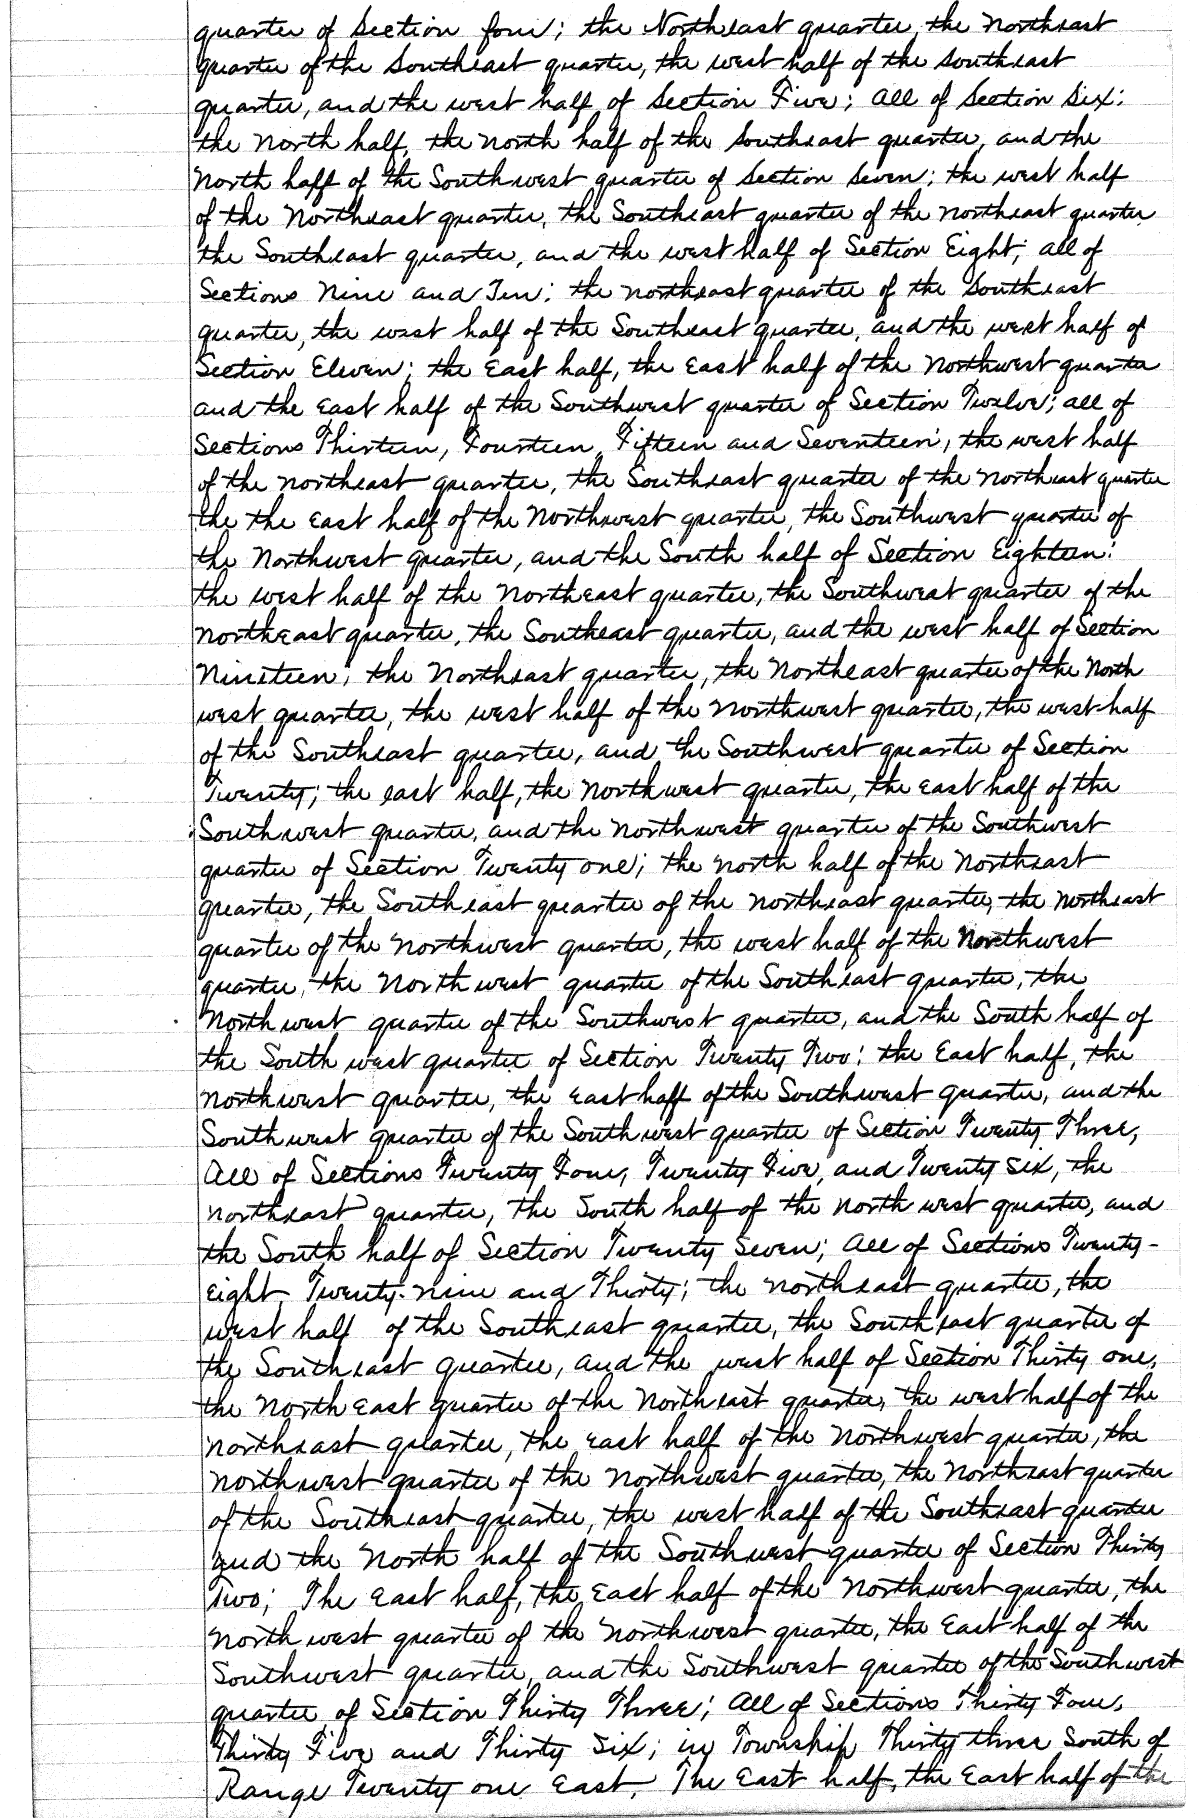 quarter of Section four; the Northeast quarter, the Northeast
quarter of the Southeast quarter, the west half of the Southeast
quarter, and the west half of Section Five; All of Section Six;
the North half, the North half of the Southeast quarter, and the
North half of the Southwest quarter of Section Seven; the west half
of the Northeast quarter, the Southeast quarter of the northeast quarter
the Southeast quarter, and the west half of Section Eight; all of
Sections Nine and Ten; the northeast quarter of the Southeast
quarter, the west half of the Southeast quarter, and the west half of
Section Eleven; the East half, the East half of the Northwest quarter
and the East half of the Southwest quarter of Section Twelve; all of
Sections Thirteen, Fourteen, Fifteen and Seventeen; the west half
of the northeast quarter, the Southeast quarter of the Northeast quarter
the the East half of the Northwest quarter, the Southwest quarter of
the Northwest quarter, and the South half of Section Eighteen;
the west half of the Northeast quarter, the Southwest quarter of the
northeast quarter, the Southeast quarter, and the west half of Section
Nineteen; the Northeast quarter, the Northeast quarter of the North
west quarter, the west half of the Northwest quarter, the west half
of the Southeast quarter, and the Southwest quarter of Section
Twenty; the east half, the Northwest quarter, the East half of the
Southwest quarter, and the Northwest quarter of the Southwest
quarter of Section Twenty one; the north half of the Northeast
quarter, the Southeast quarter of the Northeast quarter, the Northeast
quarter of the Northwest quarter, the west half of the Northwest
quarter, the North west quarter of the Southeast quarter, the
North west quarter of the Southwest quarter, and the South half of
the South west quarter of Section Twenty Two; the East half, the
Northwest quarter, the East half of the Southwest quarter, and the
Southwest quarter of the Southwest quarter of Section Twenty Three,
All of Sections Twenty Four, Twenty Five, and Twenty six, the
northeast quarter, the South half of the North west quarter, and
the South half of Section Twenty Seven; All of Sections Twenty-
Eight, Twenty-nine and Thirty; the Northeast quarter, the
west half of the Southeast quarter, the Southeast quarter of
the Southeast quarter, and the west half of Section Thirty one,
the North East quarter of the Northeast quarter, the west half of the
northeast quarter, the East half of the Northwest quarter, the
northwest quarter of the Northwest quarter, the Northeast quarter
of the Southeast quarter, the west half of the Southeast quarter
and the North half of the Southwest quarter of Section Thirty
Two; The East half, the East half of the Northwest quarter, the
North west quarter of the Northwest quarter, the East half of the
Southwest quarter, and the Southwest quarter of the Southwest
quarter of Section Thirty Three; All of Sections Thirty Four,
Thirty Five and Thirty Six; in Township Thirty three South of
Range Twenty one East. The East half, the East half of the